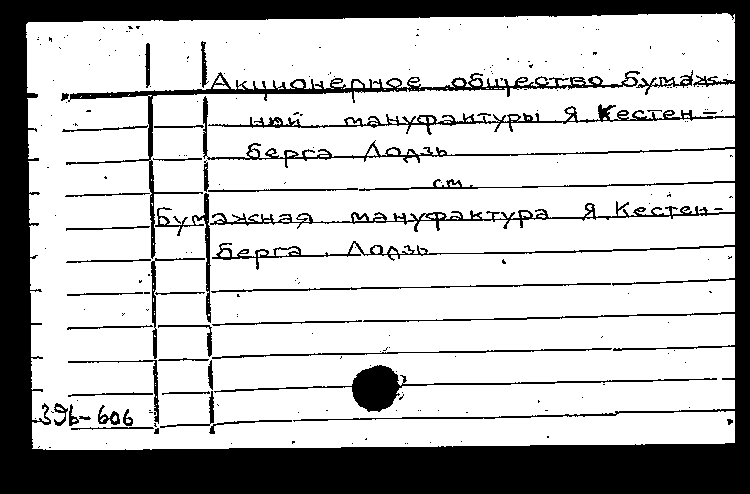 Акционерное общество бумаж-
ной мануфактуры Я. Кестен=
берга Лодзь
см.
Бумажная мануфактура Я. Кестен-
берга. Лодзь
396-606